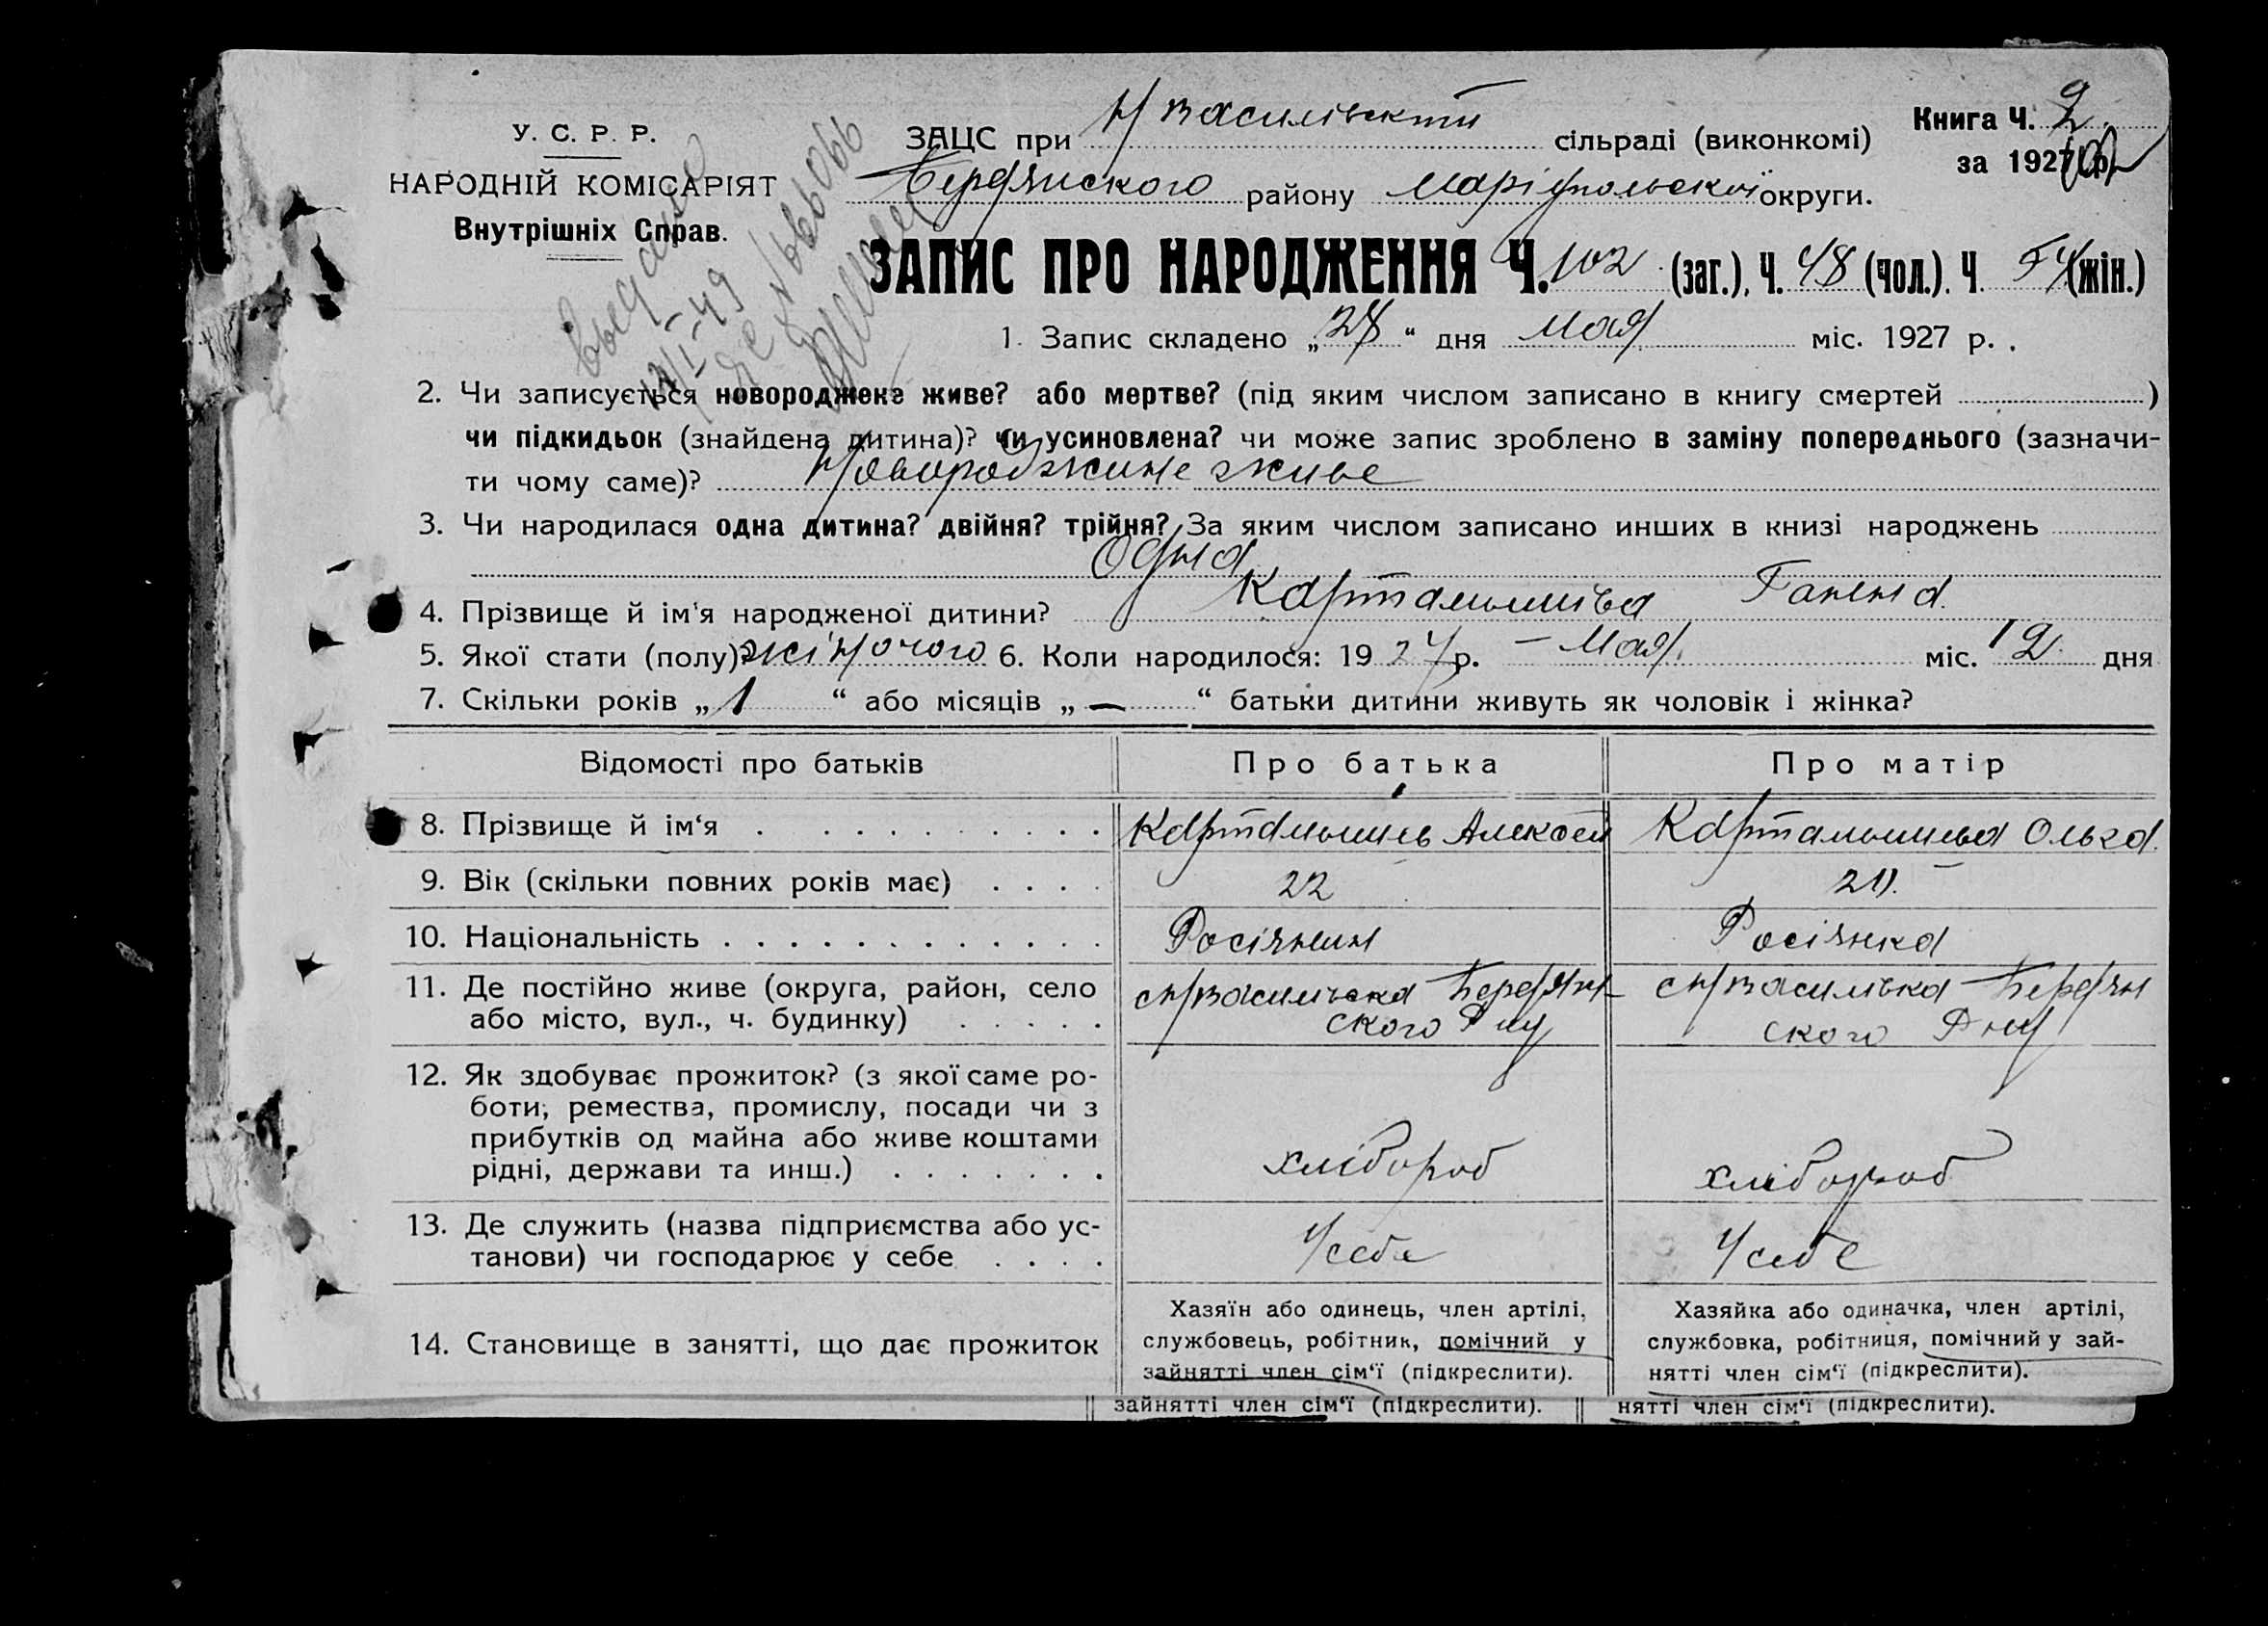 У. С. Р. Р.
НАРОДНІЙ КОМІСАРІЯТ
Внутрішніх Справ.
ЗАЦС при Н Василівскти сільраді (виконкомі)
Бердянского району Маріупольскої округи.
Книга Ч. 2
за 1927 р.
ЗАПИС ПРО НАРОДЖЕННЯ Ч. 102 (заг.), Ч. 48 (чол.). Ч. 54 (жін.)
1. Запис складено „28“ дня Мая міс. 1927 р.
2. Чи записується новороджене живе? або мертве? (під яким числом записано в книгу смертей )
чи підкидьок (знайдена дитина)? чи усиновлена? чи може запис зроблено в заміну попереднього (зазначи-
ти чому саме)? Новороджине живе
3. Чи народилася одна дитина? двійня? трійня? За яким числом записано инших в книзі народжень
Одна
4. Прізвище й ім'я народженої дитини? Картамишива Ганна.
5. Якої стати (полу)? жіночого 6. Коли народилося: 1927 р. – Мая міс. 12 дня
7. Скільки років „ 1 “ або місяців „ — “ батьки дитини живуть як чоловік і жінка?
Відомості про батьків Про батька Про матір
8. Прізвище й ім‘я Картамышев Алексей Картамышева Ольга.
9. Вік (скільки повних років має) 22 21
10. Національність Росіянин Росіянка
11. Де постійно живе (округа, район, село
або місто, вул., ч. будинку)
с Н Василівка Бердян-
ского Р ну
с Н Василівка Бердян
ского Р ну
12. Як здобуває прожиток? (з якої саме ро-
боти, ремества, промислу, посади чи з
прибутків од майна або живе коштами
рідні, держави та инш.) хлібороб хлібороб
13. Де служить (назва підприємства або ус-
танови) чи господарює у себе У себе У себе
14. Становище в занятті, що дає прожиток
Хазяїн або одинець, член артілі,
службовець, робітник, помічний у
зайнятті член сім‘ї (підкреслити).
Хазяйка або одиначка, член артілі,
службовка, робітниця, помічний у зай-
нятті член сім‘ї (підкреслити).
зайнятті член сім‘ї (підкреслити). нятті член сім‘ї (підкреслити).